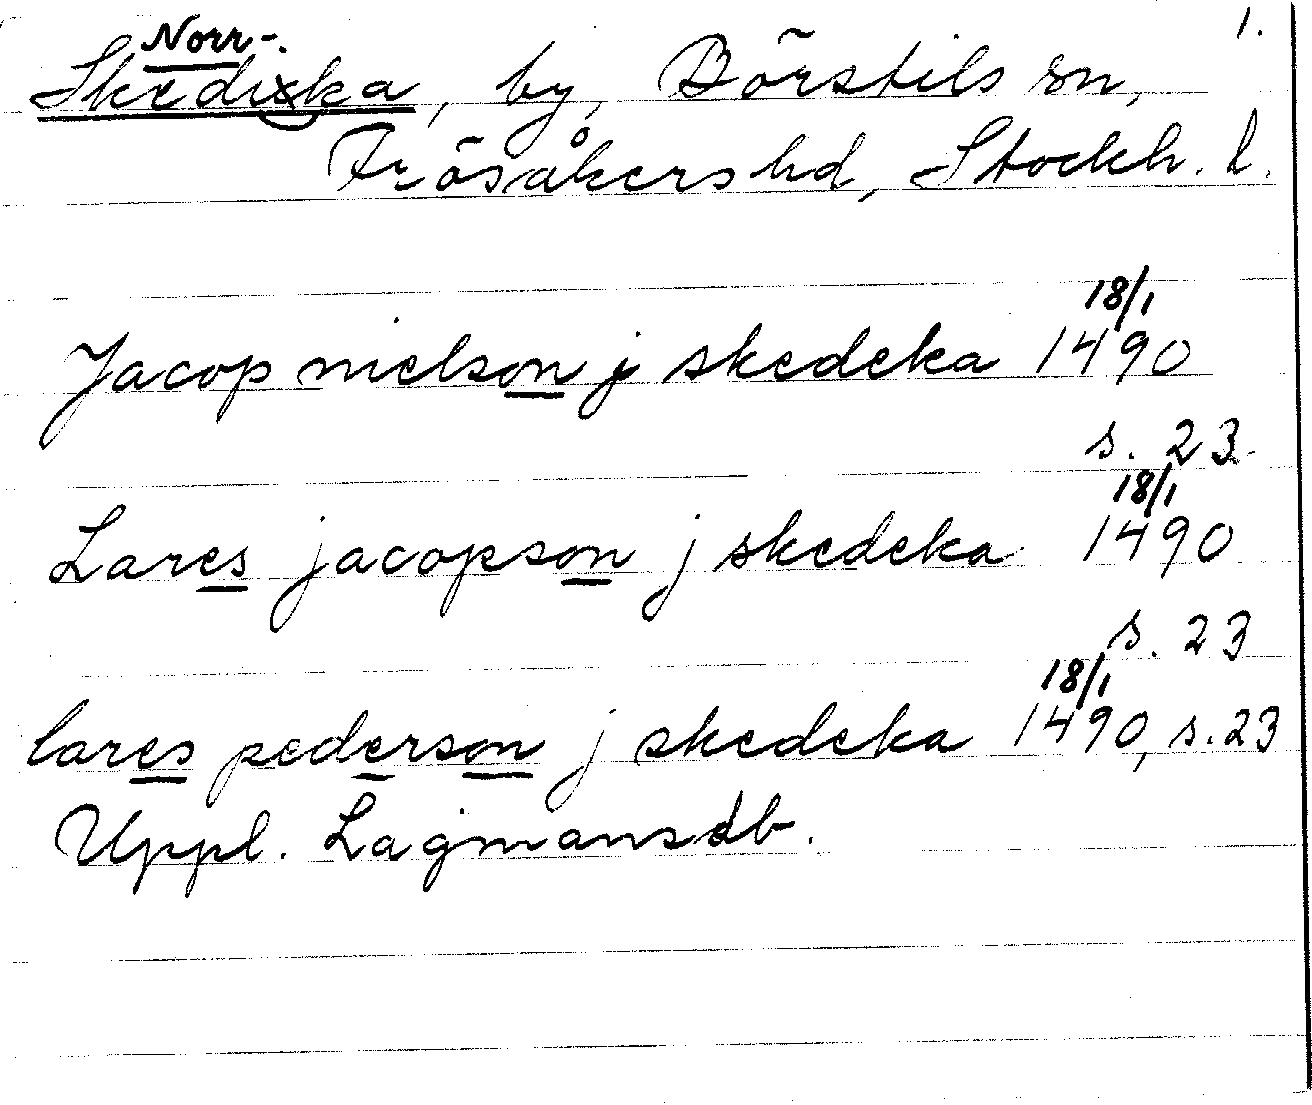 1.
Norr-.
Skedixka, by, Börstils sn,
Frösåkers hd, Stockh. l.
18/1
Jacop nielson j skedeka 1490
s. 23
18/1
Lares jacopson j skedeka 1490
s. 23
18/1
lares pederson j skedeka 1490, s. 23
Uppl. Lagmansdb.